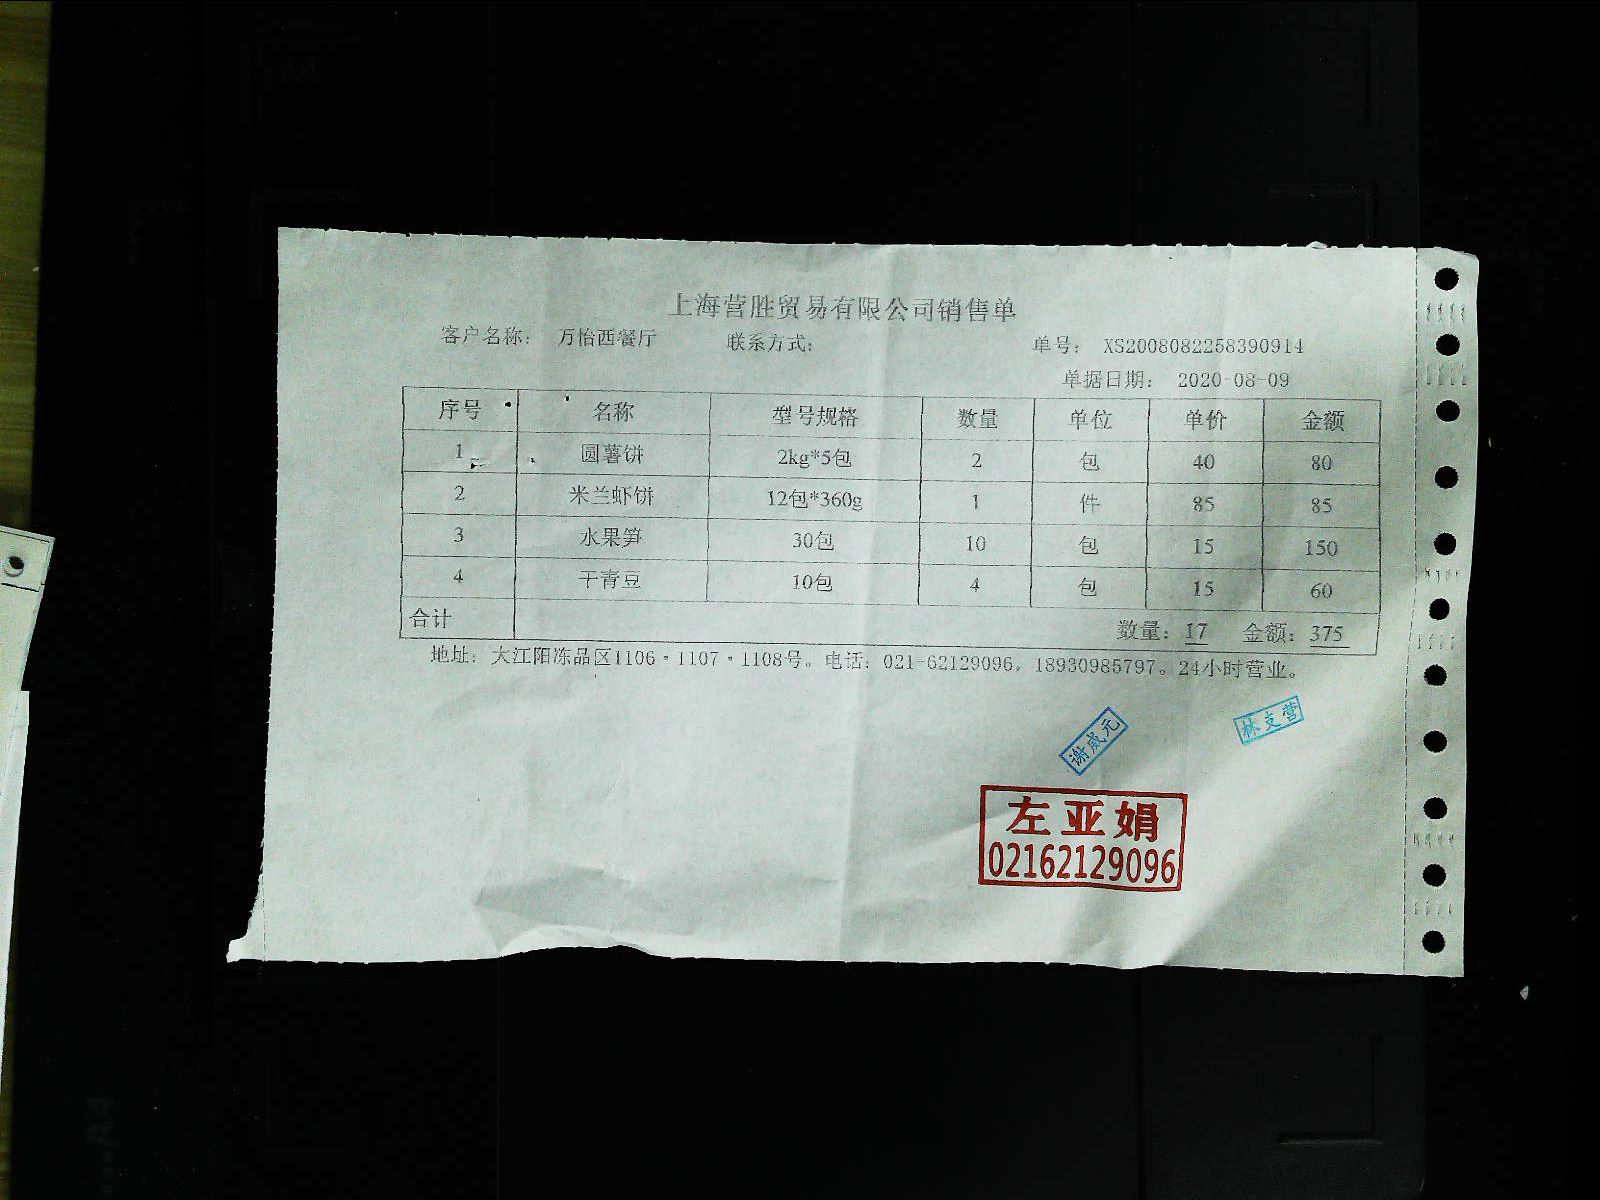 上海营胜贸易有限公司销售单
客户名称： 万怡西餐厅 联系方式： 单号： XS2008082258390914
单据日期： 2020-08-09
序号 名称 型号规格 数量 单位 单价 金额
1 圆薯饼 2kg*5包 2 包 40 80
2 米兰虾饼 12包*360g 1 件 85 85
3 水果笋 30包 10 包 15 150
4 干青豆 10包 4 包 15 60
合计 数量：17 金额：375
地址：大江阳冻品区1106·1107·1108号。电话：021-62129096，18930985797。24小时营业。
谢威元
林支营
左亚娟
02162129096
A4